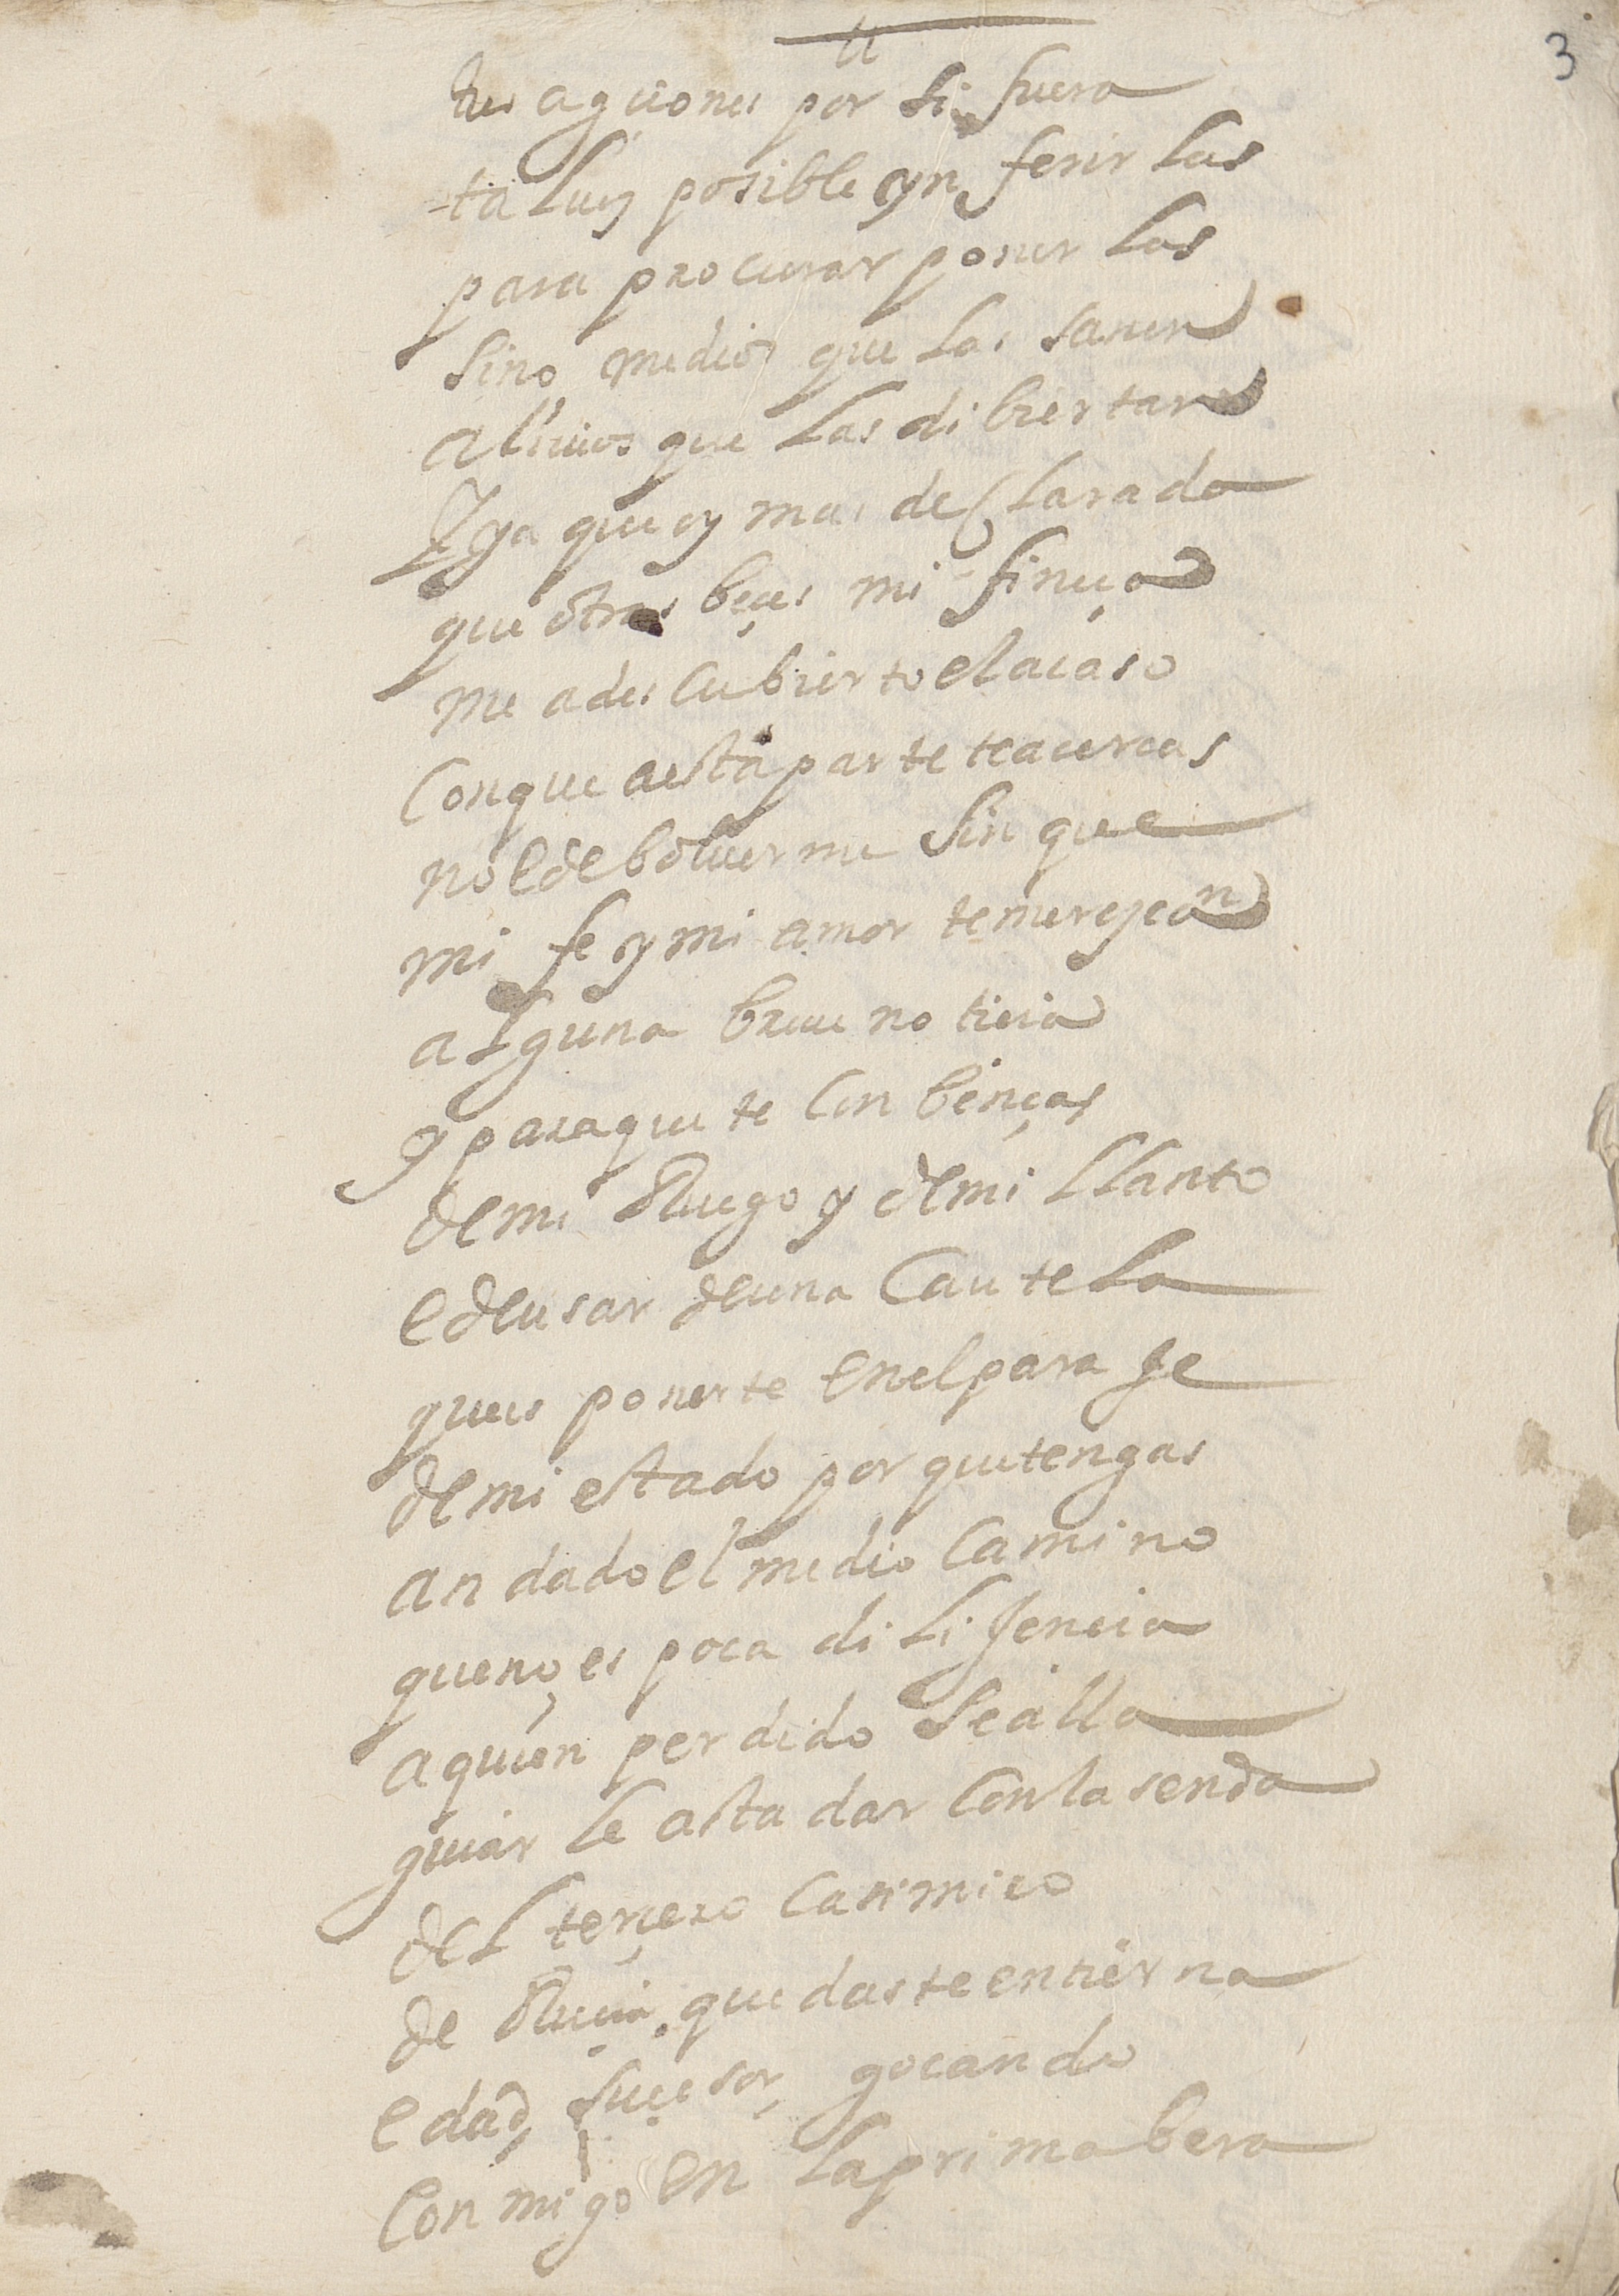 3
a
tus açiones por si fuera
ta luz posible ynferir las
para procurar poner las
sino medios que las sanen
aliuios que las dibiertan
Y ya que oy mas desclarada
que otras beçes mi fineça
me a descubierto el acaso
con que a esta parte te acercas
no e de boluerme sin que
mi fe y mi amor te mereçcan
alguna breue noticia
y para que te conbenças
de mi Ruego y de mi llanto
e de usar de una cautela
que es ponerte en el paraje
de mi estado por que tengas
andado el medio camino
que no es poca dilijencia
a quien perdido se alla
guiarle asta dar con la senda
del terçero casimiro
de Ruçia quedaste en tierna
edad suçesor goçando
conmigo en la primabera